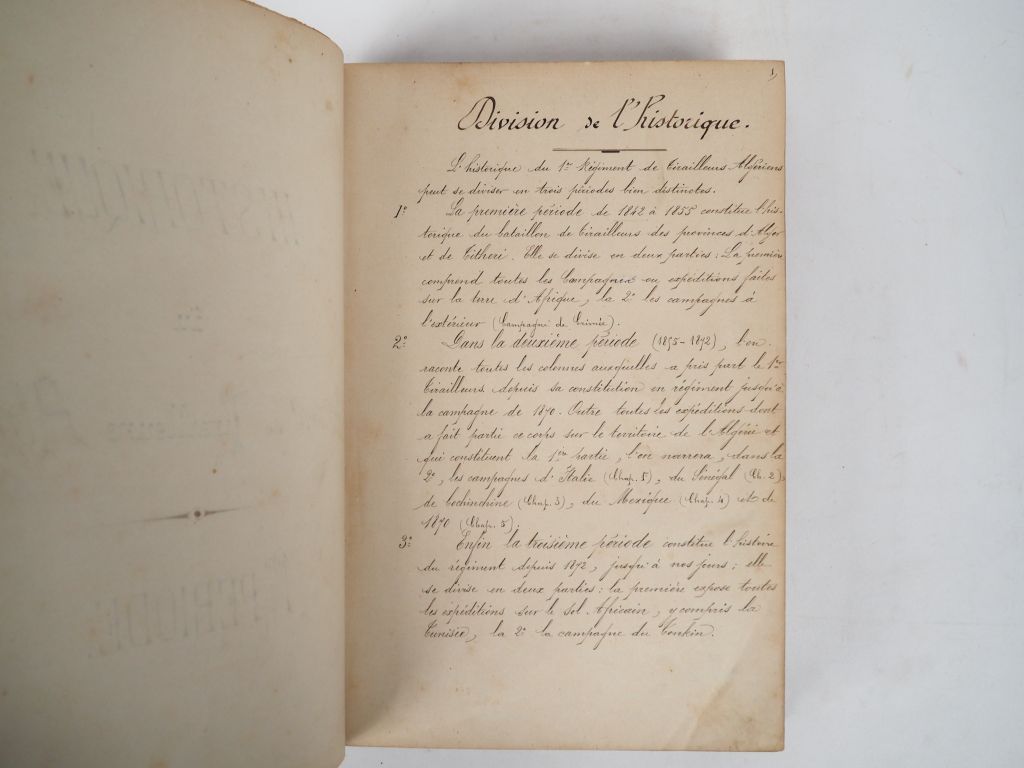 1
Division de l'historique.
L'historique du 1er Régiment de Tirailleurs Algériens
peut se diviser en trois périodes bien distinctes.
1º La première période de 1842 à 1855 constitue l'his-
torique du bataillon de Tirailleurs des provinces d'Alger
et de Titheri. Elle se divise en deux parties : La première
comprend toutes les Campagnes ou expéditions faites
sur la terre d'Afrique, la 2e les campagnes à
l'extérieur (Campagne de Crimée).
2º Dans la deuxième période (1855-1872), l'on
raconte toutes les colonnes auxquelles a pris part le 1er
Tirailleurs depuis sa constitution en régiment jusqu'à
la campagne de 1870. Outre toutes les expéditions dont
a fait partie ce corps sur le territoire de l'Algérie et
qui constituent la 1ère partie, l'on narrera, dans la
2e, les campagnes d'Italie (Chap. 5), du Sénégal (Ch. 2),
de Cochinchine (Chap. 3), du Mexique (Chap. 4) et de
1870 (Chap. 5).
3º Enfin la troisième période constitue l'histoire
du régiment depuis 1872, jusqu'à nos jours : elle
se divise en deux parties : la première expose toutes
les expéditions sur le sol Africain, y compris la
Tunisie, la 2e la campagne du Tonkin.